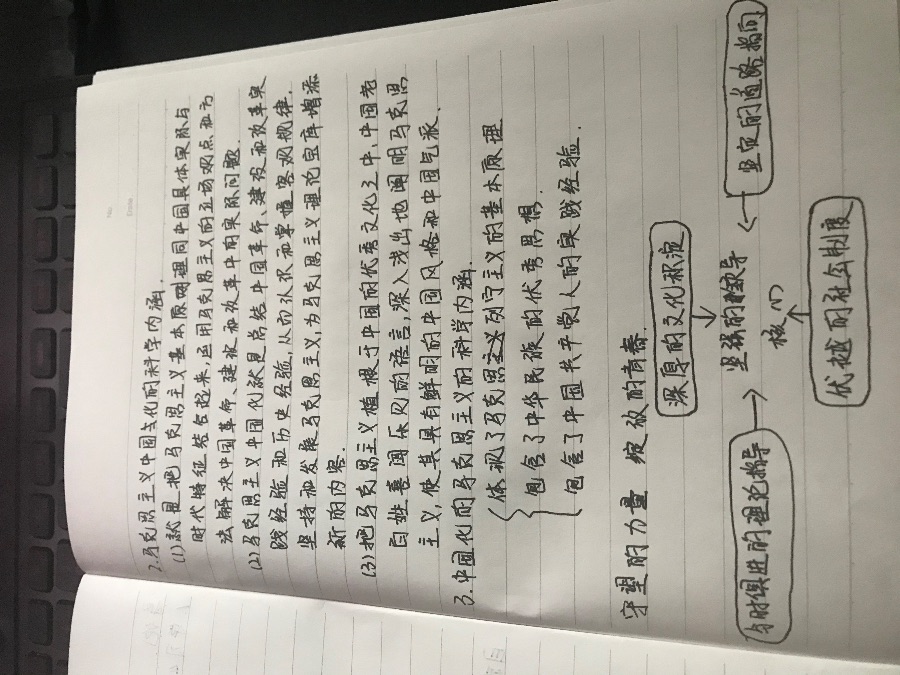 2.马克思主义中国化的科学内涵.
(1)就是把马克思主义基本原理同中国具体实际与
时代特征结合起来,运用马克思主义的立场观点和方
法解决中国革命、建设和改革中的实际问题.
(2)马克思主义中国化就是总结中国革命、建设和改革实
践经验和历史经验,从而认识和掌握客观规律.
坚持和发展马克思主义,为马克思主义理论宝库增添
新的内容.
(3)把马克思主义植根于中国的优秀文化之中,中国老
百姓喜闻乐见的语言,深入浅出地阐明马克思
主义,使其具有鲜明的中国风格和中国气派.
3.中国化的马克思主义的科学内涵.
体现了马克思主义列宁主义的基本原理
包含了中华民族的优秀思想.
包含了中国共产党人的实践经验.
守望的力量 绽放的青春.
深厚的文化积淀
与时俱进的理论指导
坚强的领导
核心
坚定的道路指向
优越的社会制度